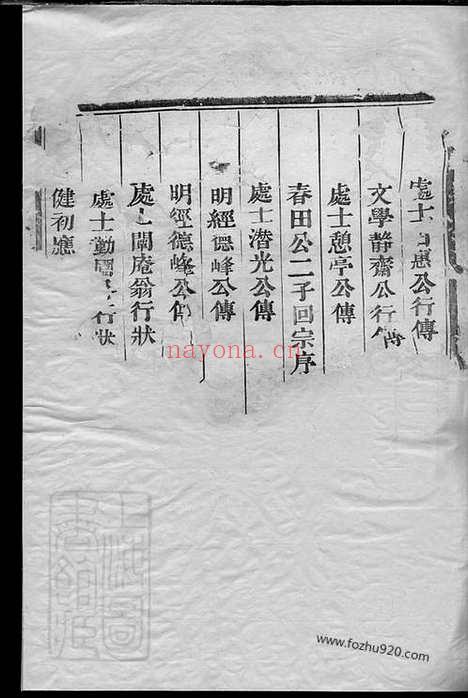 處士 惠公行傳
文學靜齋公行傳
處士憇亭公傳
春田公二子回宗序
處士潛光公傳
明經德峰公傳
明經德峰公傳
處士闇庵翁行狀
處士勤 行狀
健初應
nayona.cn
www.fozhu920.com